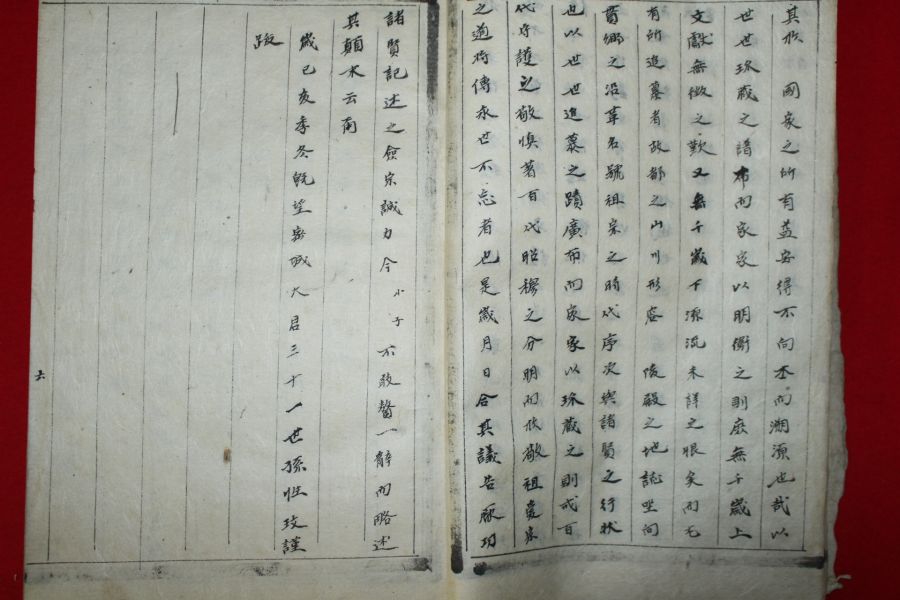 其於 國家之所有盖安得不向本而溯源也哉以
世世珍藏之譜布而家家以明衛之則庶無千歲上
文獻無徵之歎又無千歲下源流未詳之恨矣而无
有所進墓者故都之山川形容 陵殿之地誌坐向
貫鄉之沿革名號祖宗之時代序次與諸賢之行狀
也以世世進慕之蹟廣布而家家以珍藏之則戒百
代守護之敬愼著百代昭穆之分明而依敬祖愛宗
之道将傳永世不忘者也是歲月日合其議告厥功
諸賢記述之僉宗誠力今小子不敢贅一辭而略述
其顛末云甭
歲己亥季冬旣望密城大君三十一世孫性玟謹
跋
六